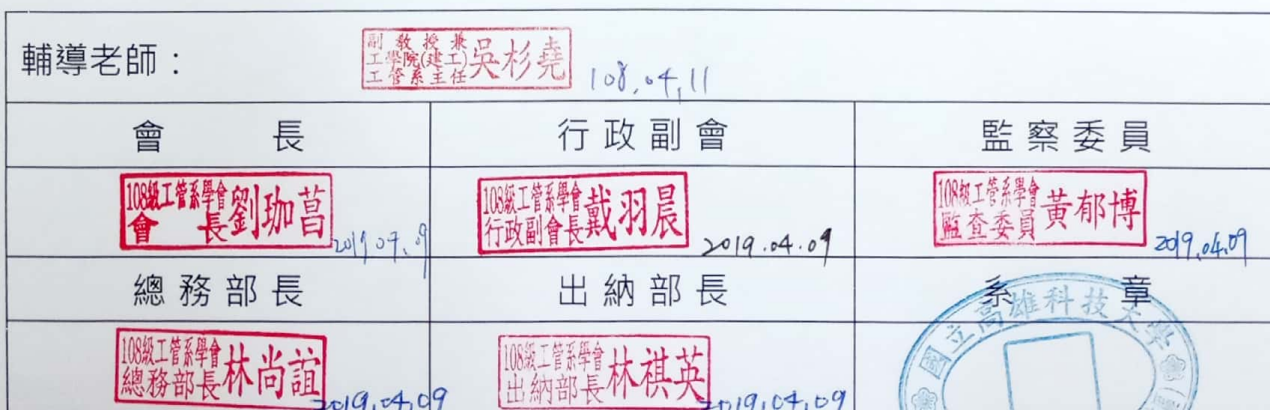 輔導老師：
副教授兼
工學院(建工)
工管系主任 吳杉堯
108.04.11
會 長 行政副會 監察委員
108級工管系學會
會 長 劉珈菖
2019.04.09
108級工管系學會
行政副會長 戴羽晨
2019.04.09
108級工管系學會
監查委員 黃郁博
2019.04.09
總務部長 出納部長 系 章
108級工管系學會
總務部長 林尚誼
2019.04.09
108級工管系學會
出納部長 林祺英
2019.04.09
國立高雄科技大學